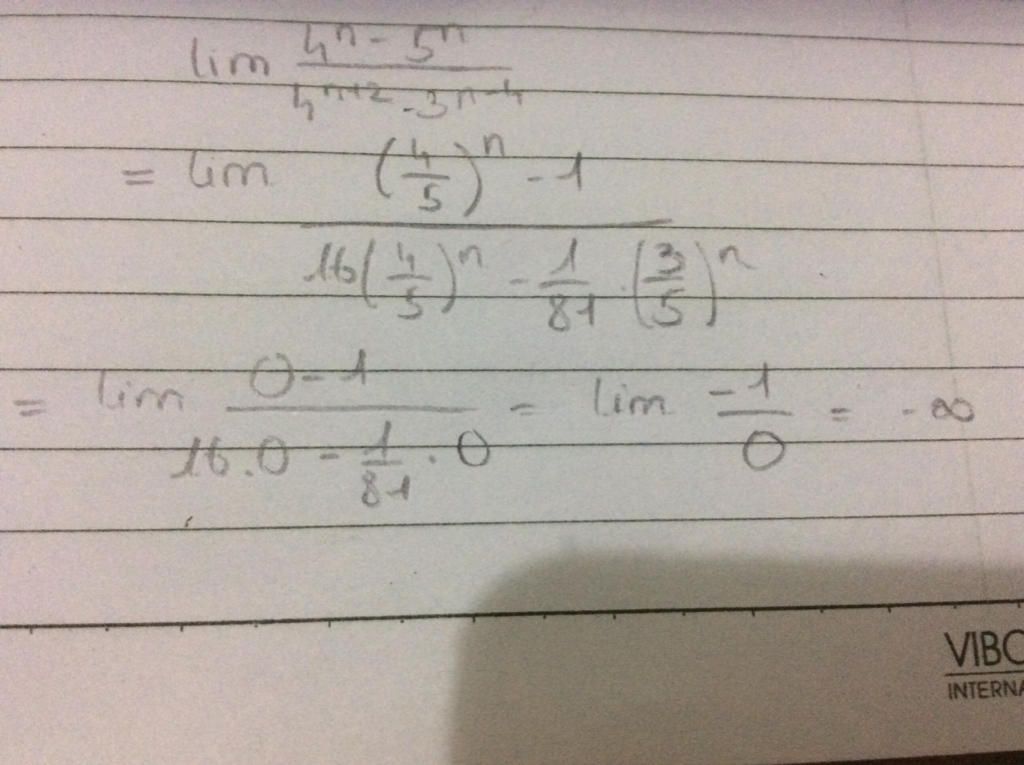 lim (4ⁿ - 5ⁿ)/(4ⁿ⁺² - 3ⁿ⁻⁴)
= lim ((4/5)ⁿ - 1)/(16(4/5)ⁿ - 1/81 · (3/5)ⁿ)
= lim (0 - 1)/(16.0 - 1/81 · 0) = lim -1/0 = -∞
VIBO
INTERNA